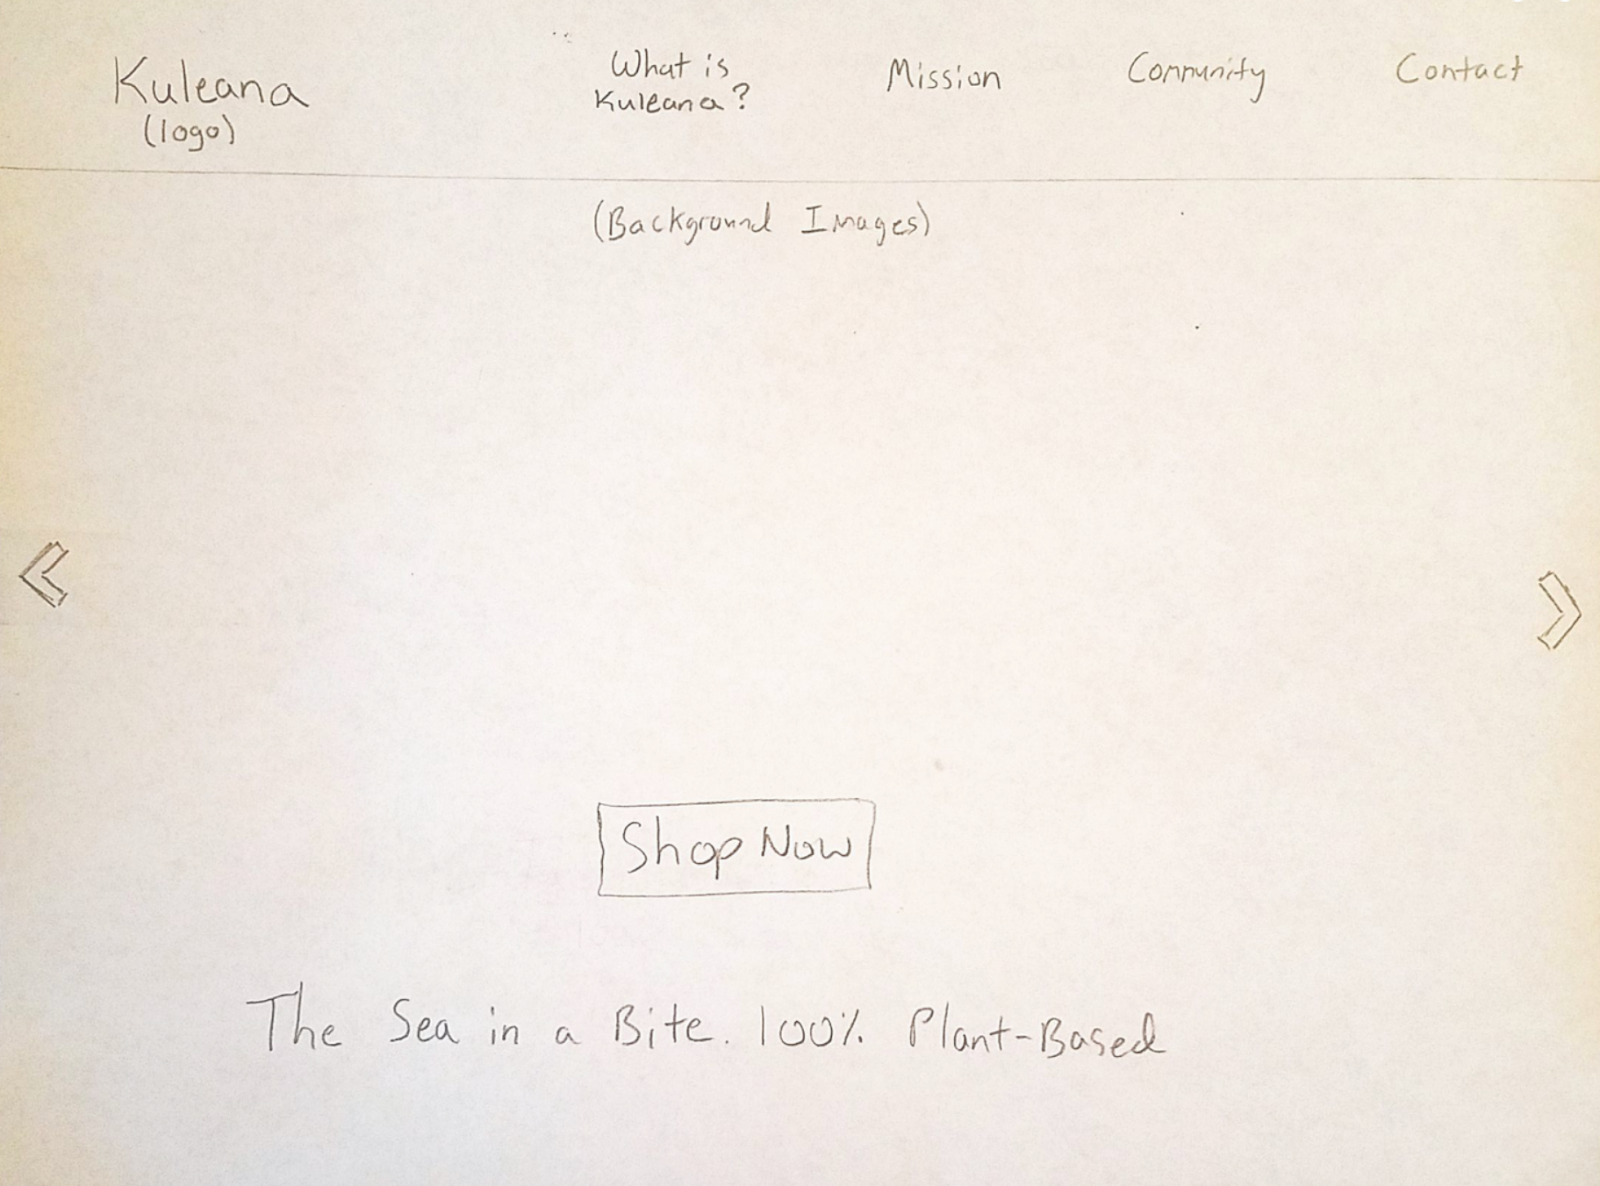 Kuleana
(logo)
What is
Kuleana?
Mission
Community
Contact
(Background Images)
Shop Now
The Sea in a Bite. 100% Plant-Based